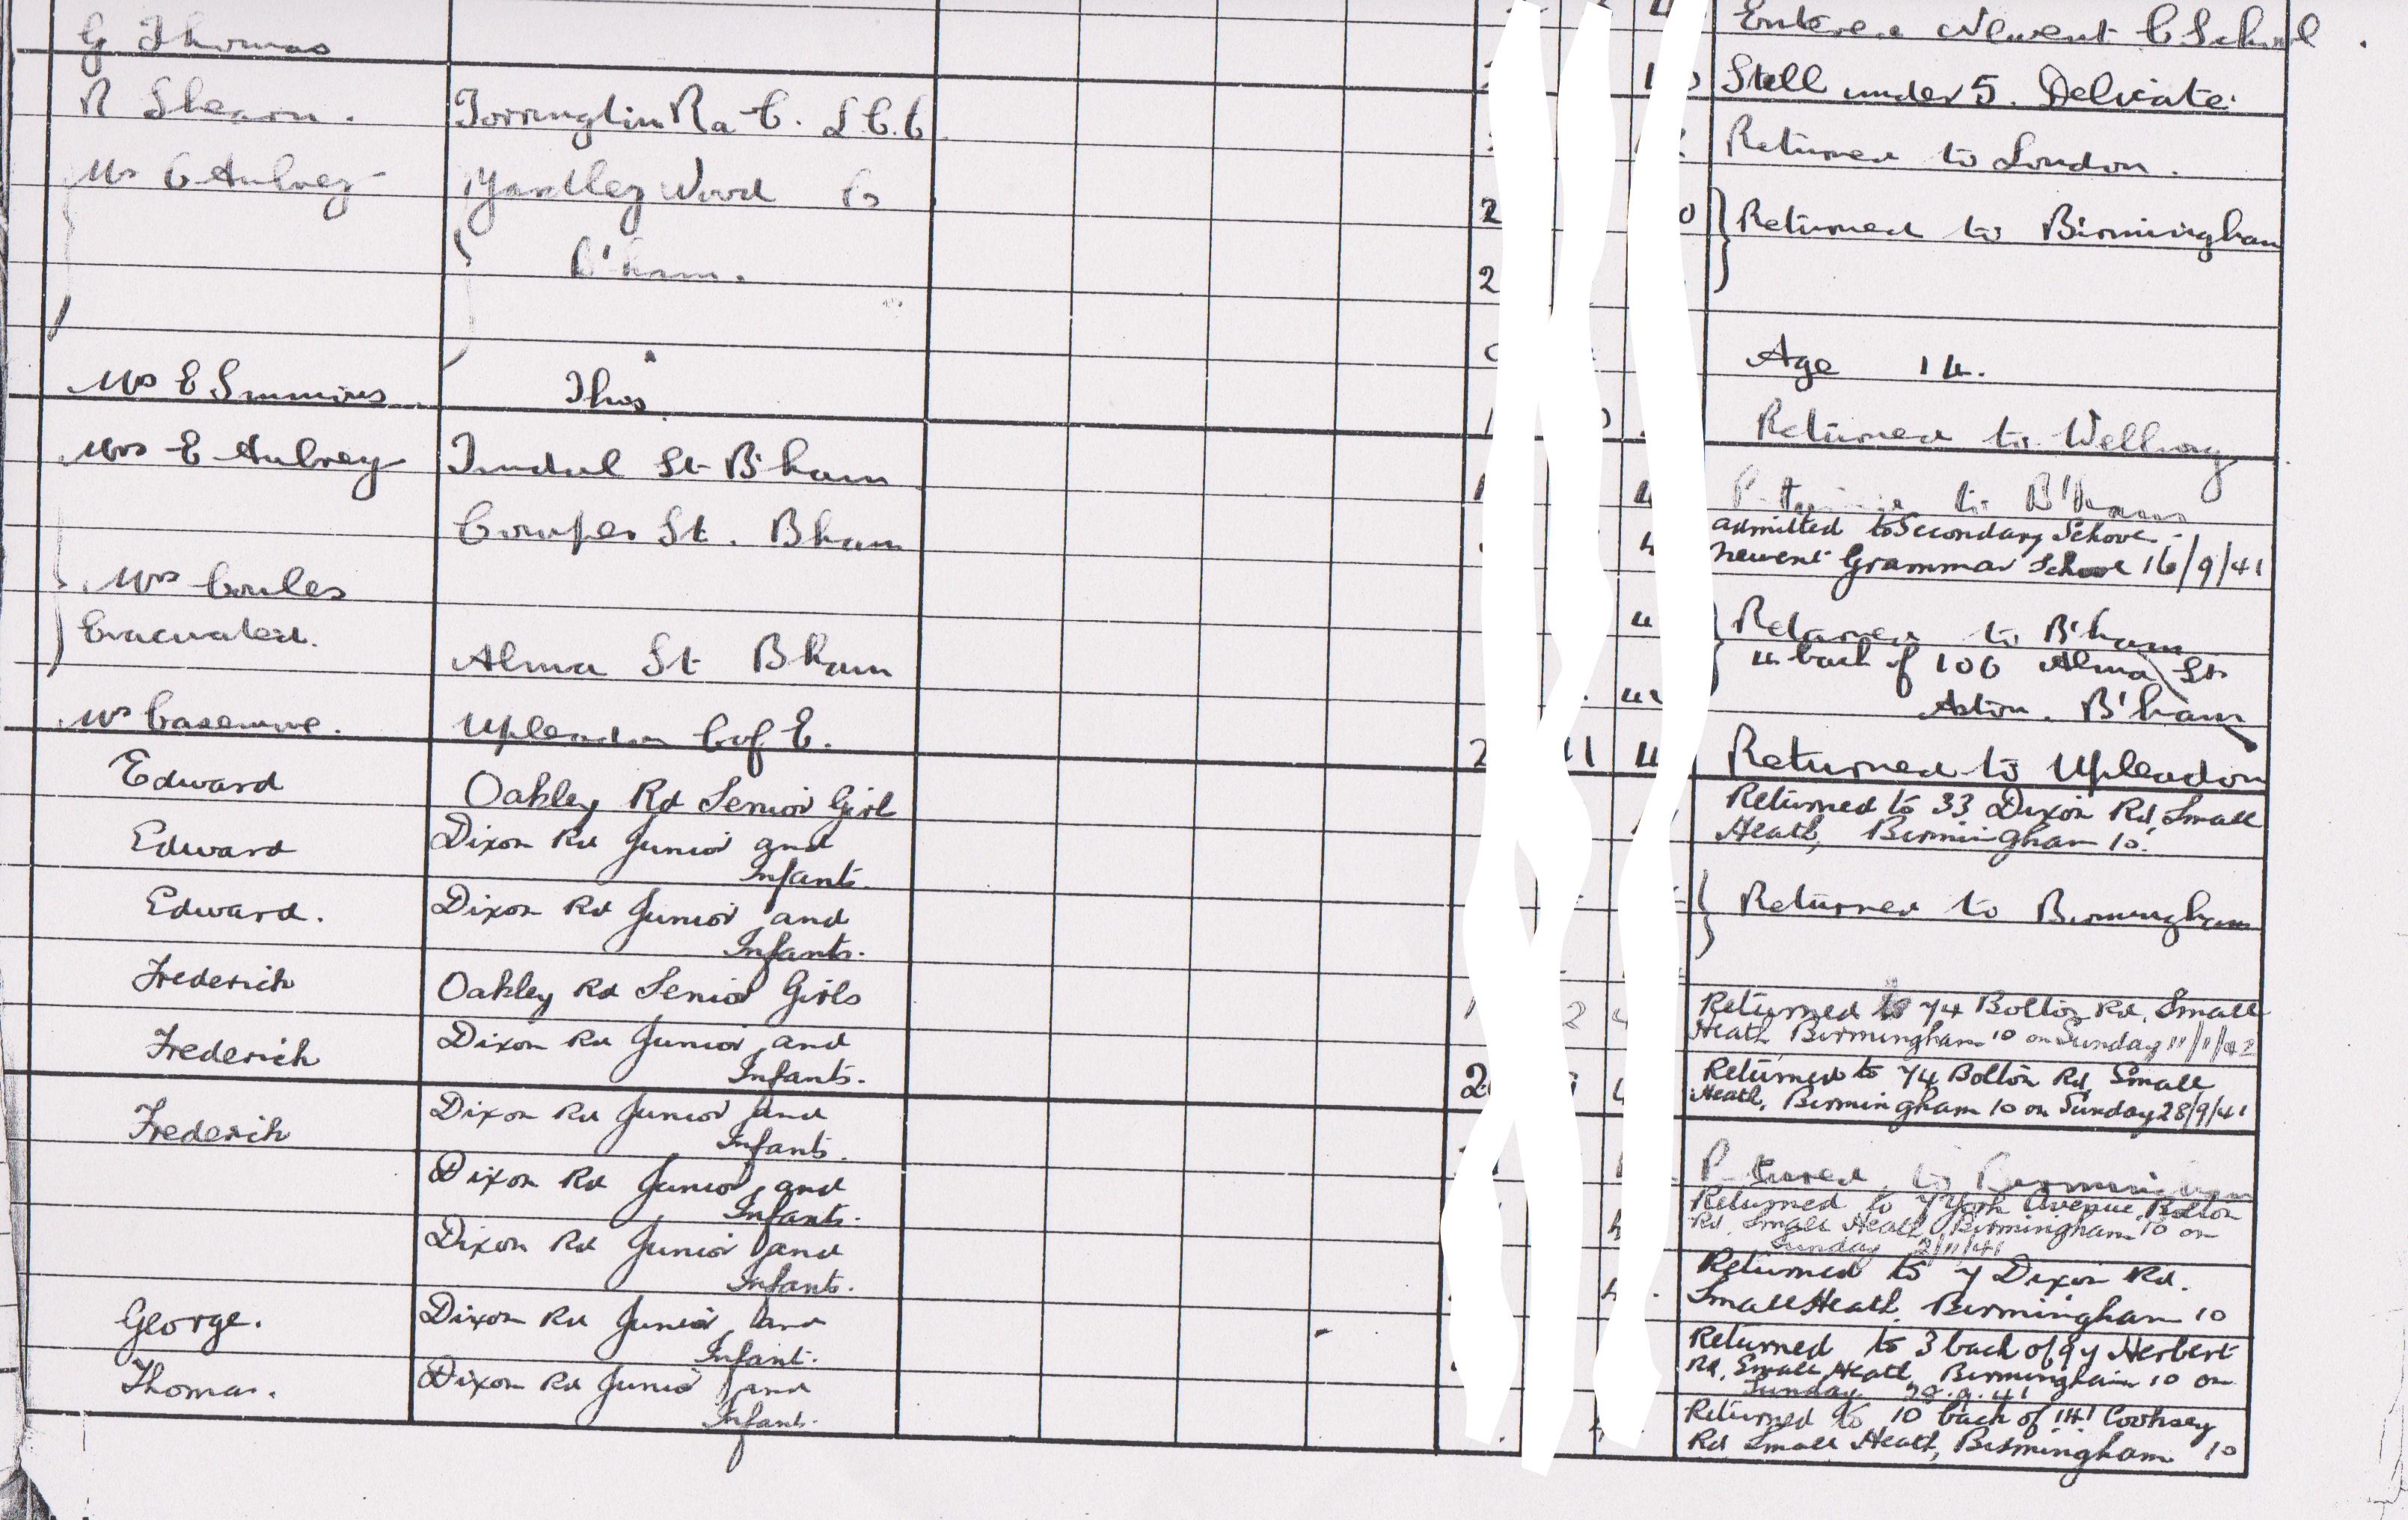 G Thomas
Newent C School.
R Shearn. Torrington Rd C. L.C.C. Still under 5. Delicate.
Returned to London.
Mrs C Aubrey Yardley Wood C
2 0 Returned to Birmingham
B'ham.
2
Age 14.
Mrs E Simmons This
Returned to
Mrs E Aubrey St B'ham
to B'ham
Cowper St. Bham
admitted to Secondary School
Newent Grammar School 16/9/41
Mrs Coules
Evacuated.
Returned to B'ham
4 back of 106 Alma St
Alma St Bham
Aston. B'ham
Mrs Upleadon C of E.
2 11 4 Returned to Upleadon
Edward Oakley Rd Senior Girl
Returned to 33 Dixon Rd, Small
Heath, Birmingham 10.
Edward Dixon Rd Junior and
Infants.
Edward. Dixon Rd Junior and
Infants.
Returned to Birmingham
Frederick Oakley Rd Senior Girls
2 4 Returned to 74 Bolton Rd, Small
Heath Birmingham 10 on Sunday 11/1/42
Frederick Dixon Rd Junior and
Infants.
2 4 Returned to 74 Bolton Rd, Small
Heath, Birmingham 10 on Sunday 28/9/41
Frederick Dixon Rd Junior and
Infants.
to Birmingham
Dixon Rd Junior and
Infants.
Returned to 7 York Avenue, Bolton
Rd, Small Heath, Birmingham 10 on
Sunday 2/11/41
Dixon Rd Junior and
Infants.
Returned to 7 Dixon Rd.
Small Heath, Birmingham 10
George. Dixon Rd Junior and
Infant.
Returned to 3 back of 97 Herbert
Rd, Small Heath, Birmingham 10 on
Sunday 28.9.41
Thomas. Dixon Rd Junior and
Infant.
Returned to 10 back of 141 Cooksey
Rd Small Heath, Birmingham 10